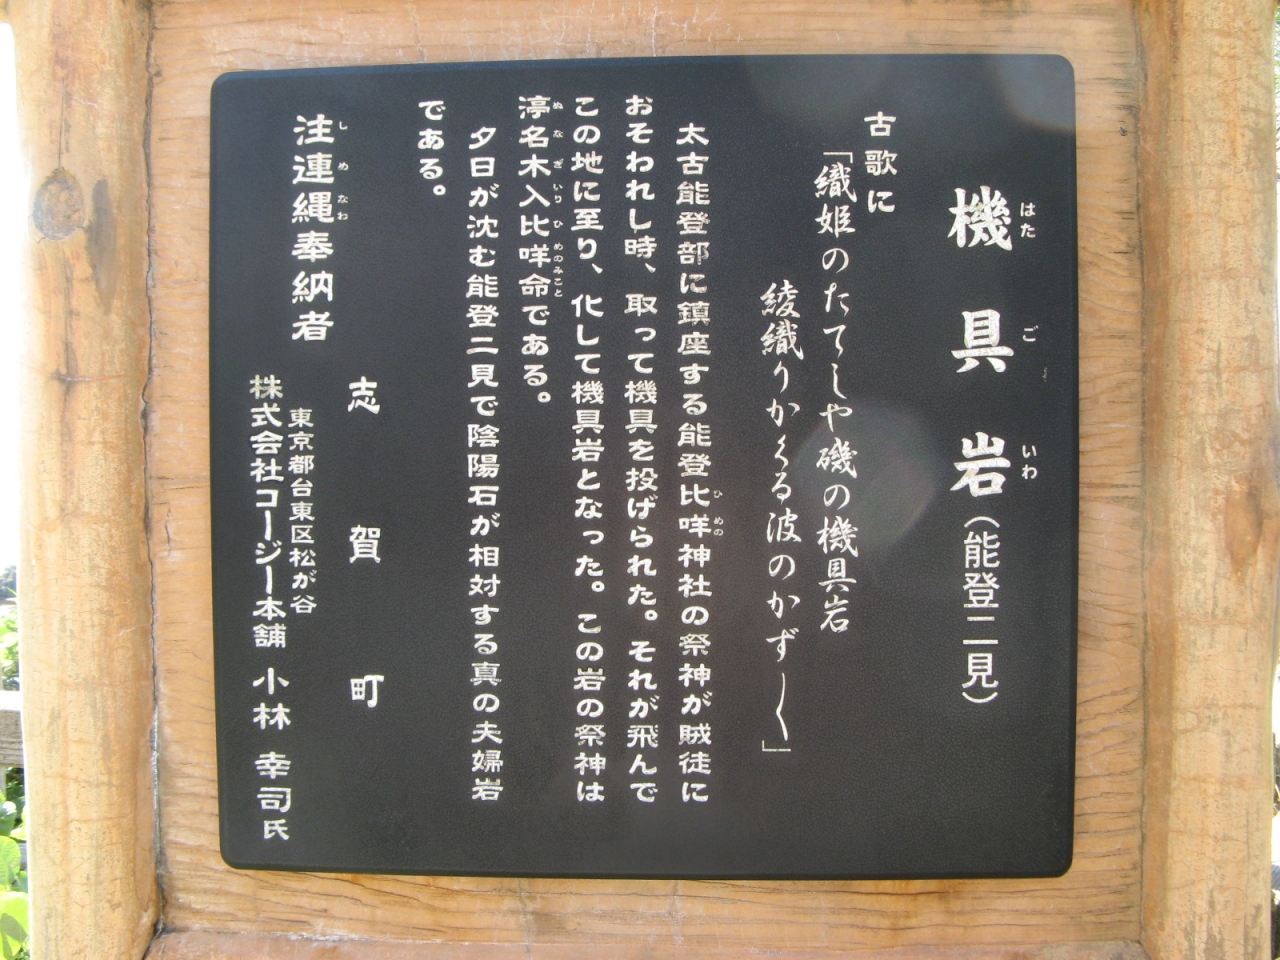 機具岩(能登二見)
はたごいわ
古歌に
「織姫のたてしや磯の機具岩
綾織りかくる波のかずしく」
太古能登部に鎮座する能登比咩神社の祭神が賊徒に
ひめの
おそわれし時、取って機具を投げられた。それが飛んで
この地に至り、化して機具岩となった。この岩の祭神は
渟名木入比咩命である。
ぬなぎいりひめのみこと
夕日が沈む能登二見で陰陽石が相対する真の夫婦岩
である。
志賀町
注連縄奉納者
しめなわ
東京都台東区松が谷
株式会社コージー本舗 小林 幸司氏